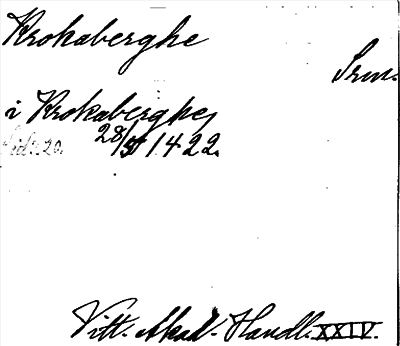 Krokaberghe
Srm.
i Krokaberghe,
28/5 1422.
Sid. 20.
Vitt. Akad. Handl. XXIV.